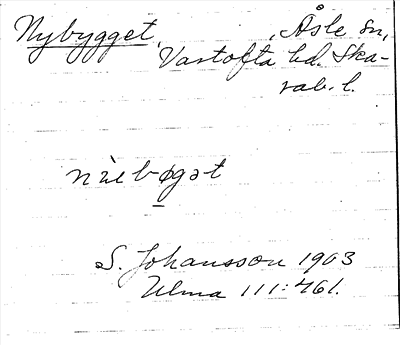 Nybygget, Åsle sn,
Vartofta hd. Ska-
rab. l.
nìebøgət
S. Johansson 1903
Ulma 111:461.